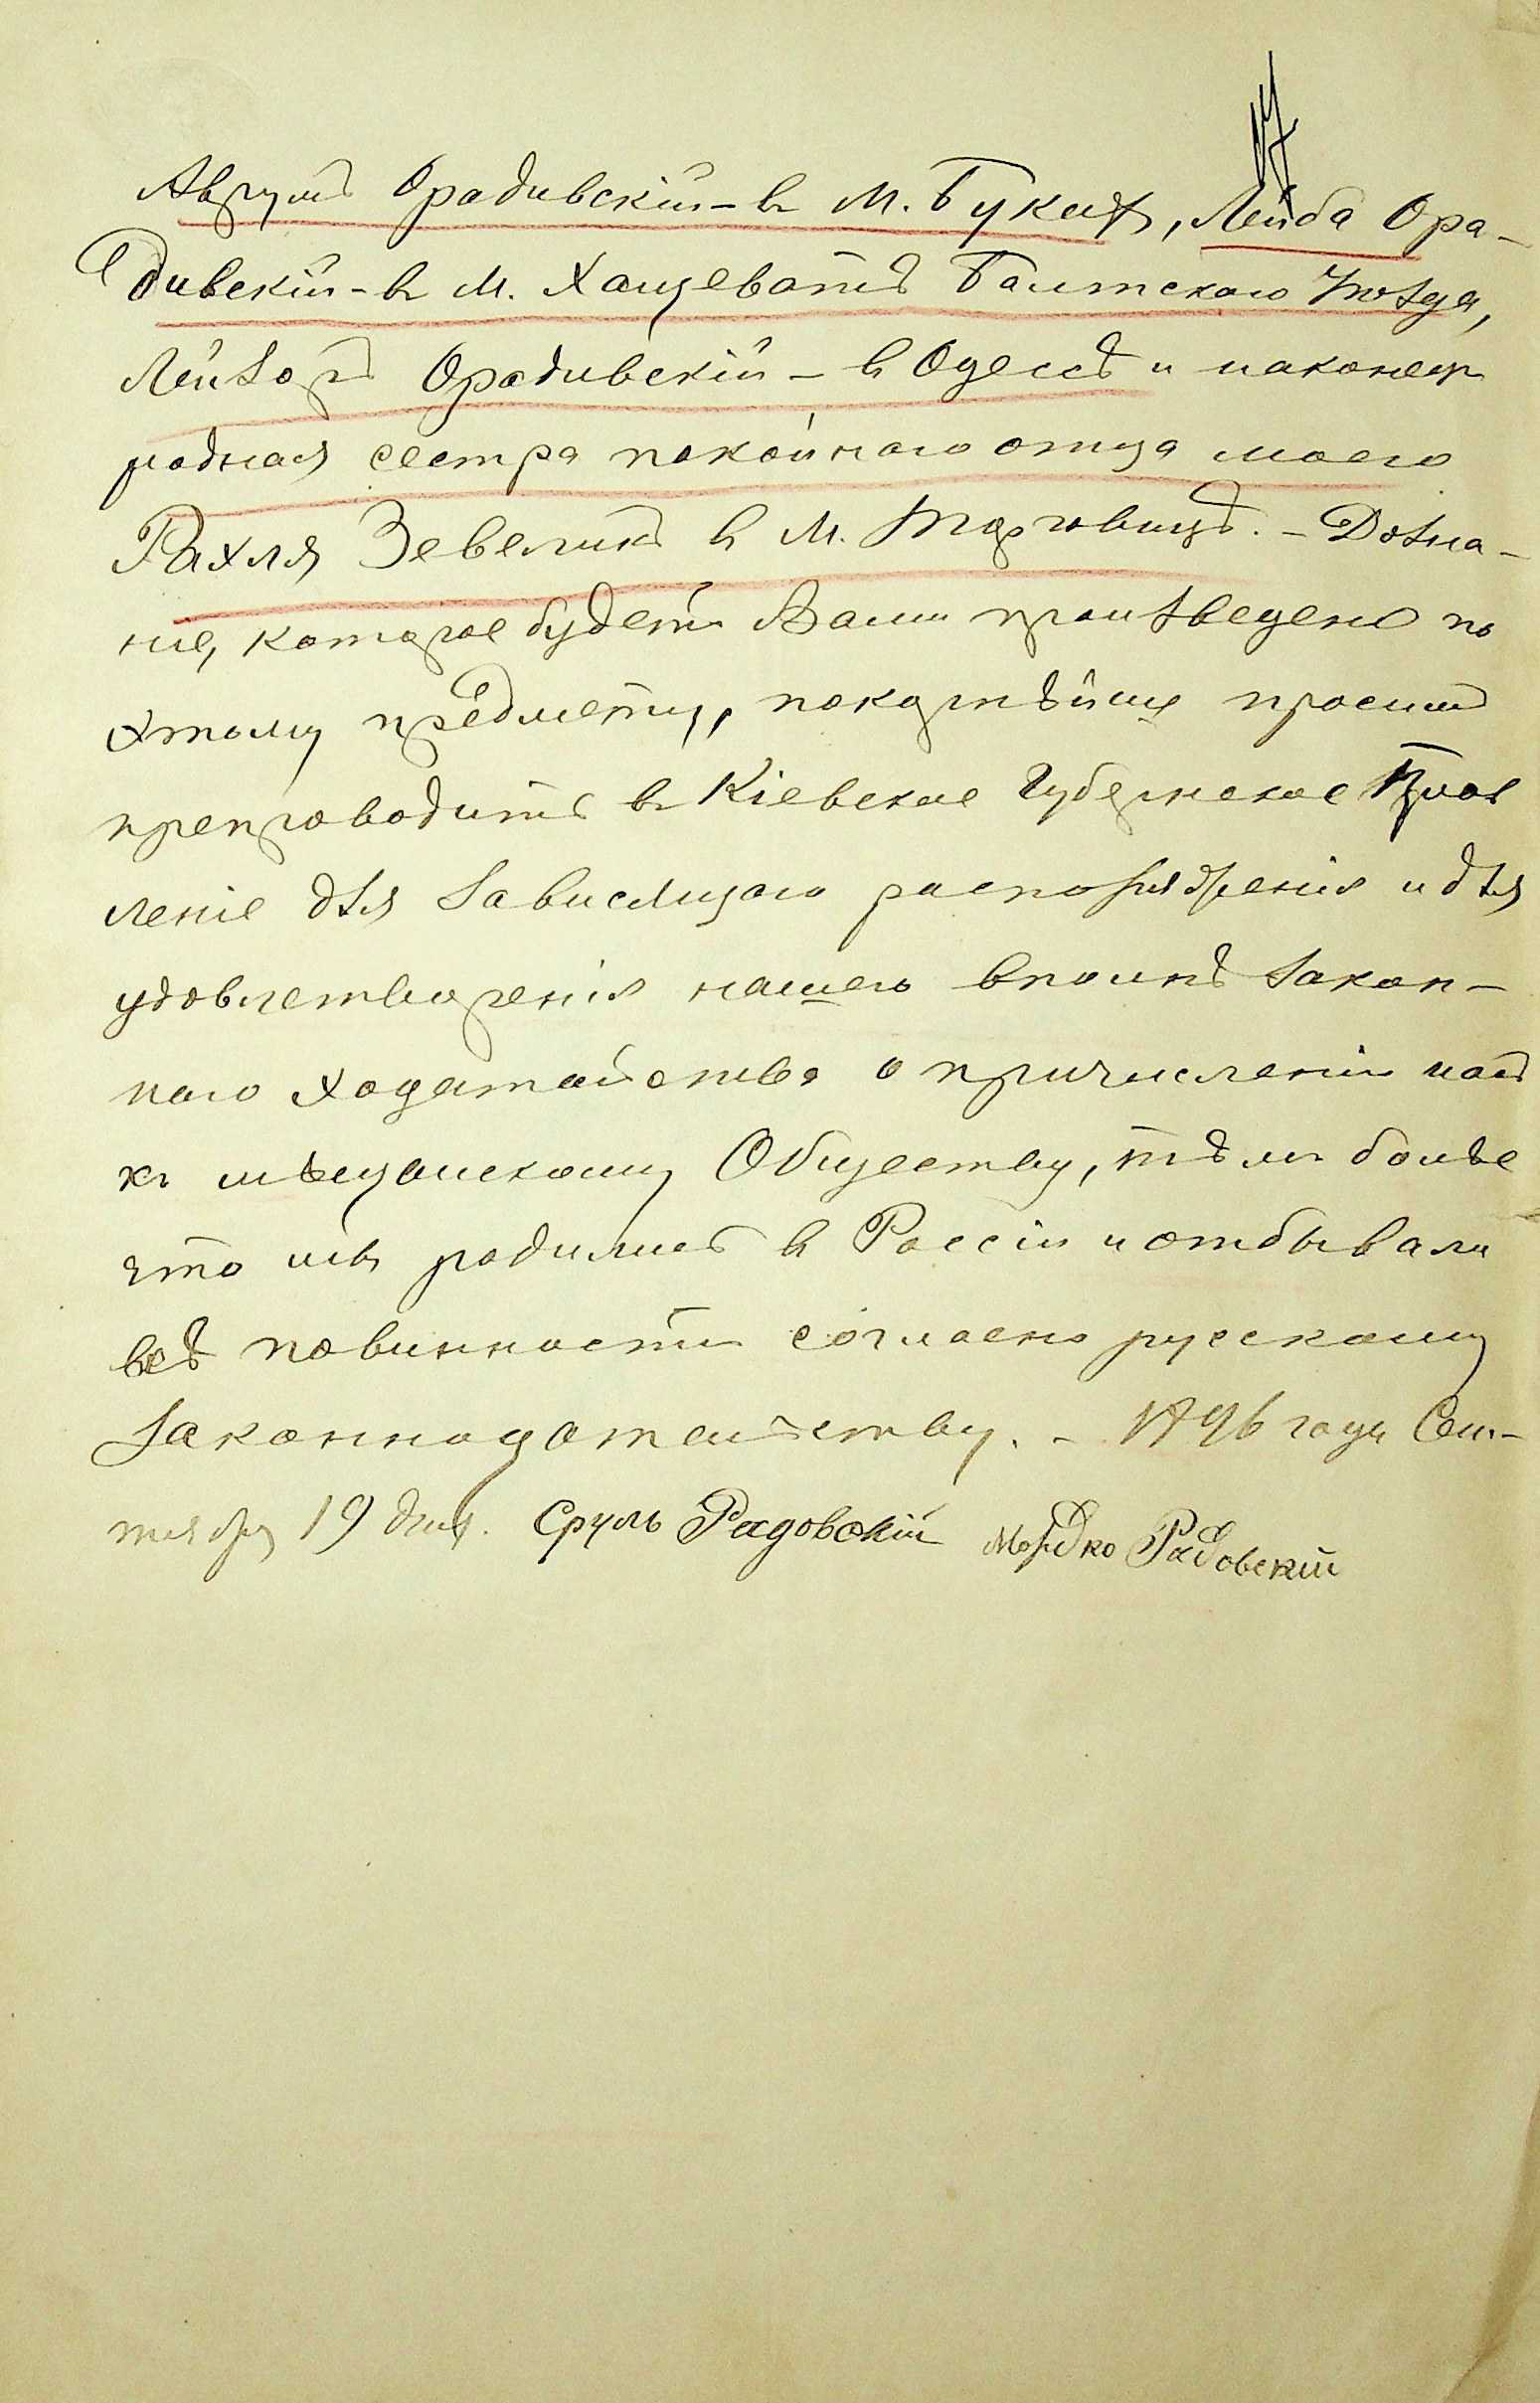 Аврумъ Орадивскій – въ м. Букахъ, Лейба Ора-
дивскій – въ м. Хащеватѣ Балтскаго Уѣзда,
Лейзоръ Орадивскій – въ Одессѣ и наконецъ
родная сестра покойнаго отца моего
Рахля Зевелинъ въ м. Торговицѣ. – Дозна-
ніе, которое будетъ Вами произведено по
этому предмету, покорнѣйше просимъ
препроводить въ Кіевское Губернское Прав
леніе для зависящаго распоряженія и для
удовлетворенія нашего вполнѣ закон-
наго ходатайства о причисленіи насъ
къ мѣщанскому Обществу, тѣмъ болѣе
что мы родились въ Россіи и отбывали
всѣ повинности согласно русскому
законнодательству. – 1896 года Сен-
тября 19 дня. Сруль Радовскій Мордко Радовскій